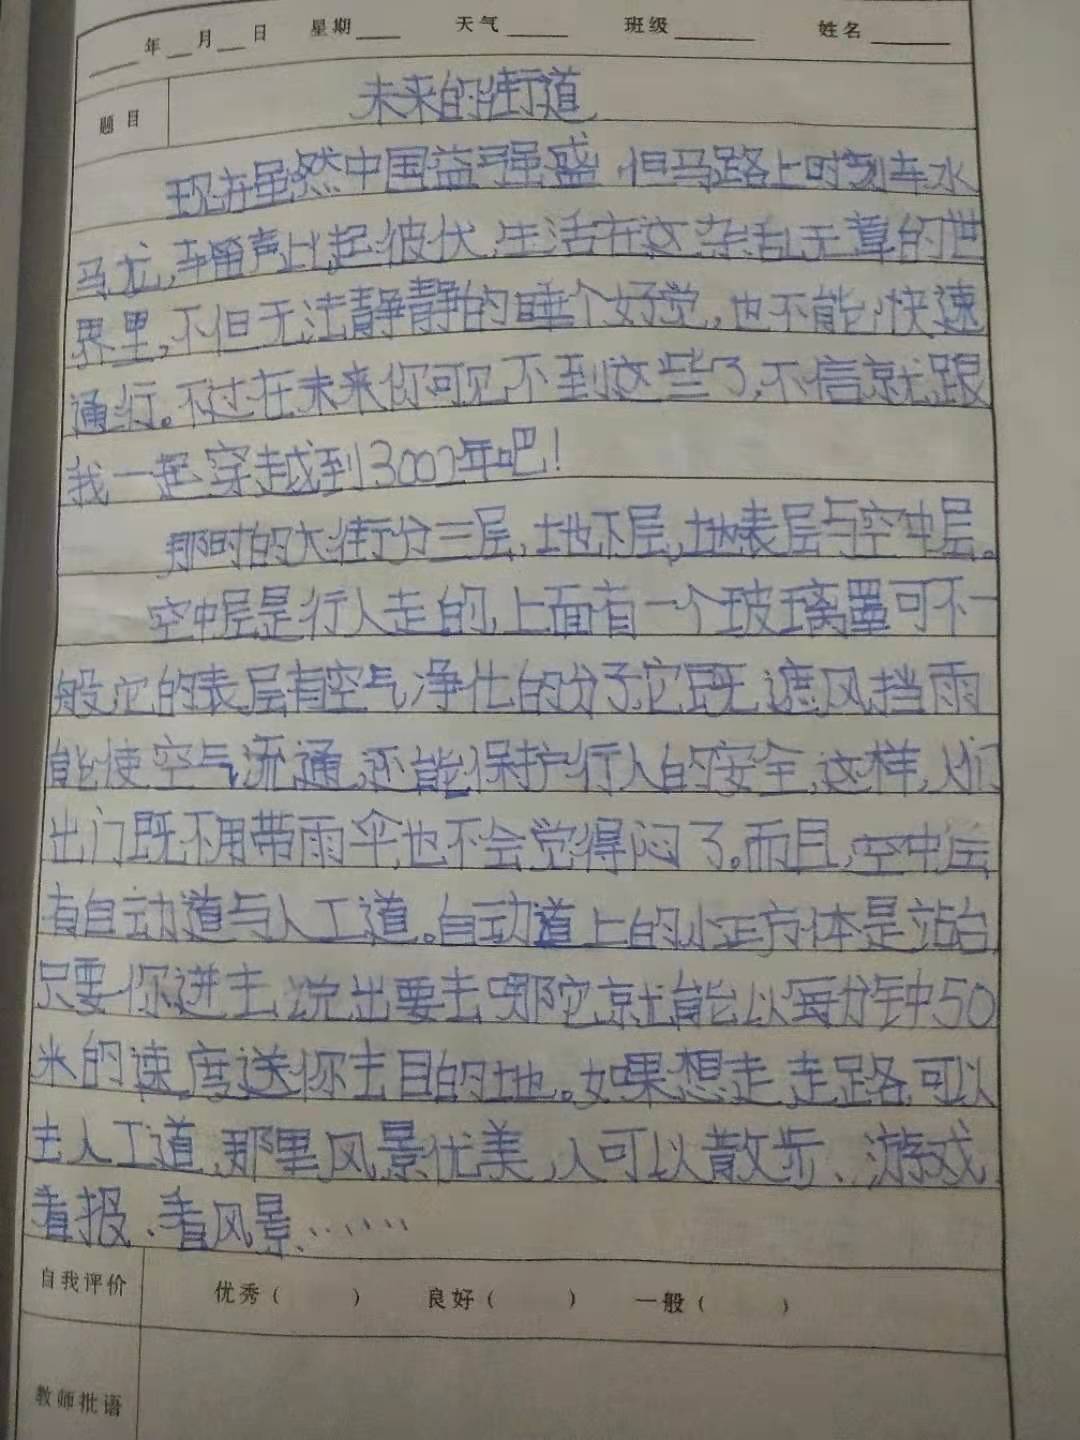 年 月 日 星期 天气 班级 姓名
题目 未来的街道
现在虽然中国益强盛,但马路上时刻车水
马龙,车声比起彼伏,生活在这杂乱无章的世
界里,不但无法静静的睡个好觉,也不能快速
通行。不过在未来你可见不到这些了,不信就跟
我一起穿越到3007年吧!
那时的大街分三层,地下层,地表层与空中层。
空中层是行人走的,上面有一个玻璃罩可不一
般它的表层有空气净化的分子它既遮风挡雨
能使空气流通,还能保护行人的安全,这样,人们
出门既不用带雨伞也不会觉得闷了。而且,空中层
有自动道与人工道。自动道上的小正方体是站台
只要你进去,说出要去哪它就能以每分钟50
米的速度送你去目的地。如果想走走路,可以
去人工道,那里风景优美,人可以散步、游戏、
看报、看风景……
自我评价 优秀( ) 良好( ) 一般( )
教师批语